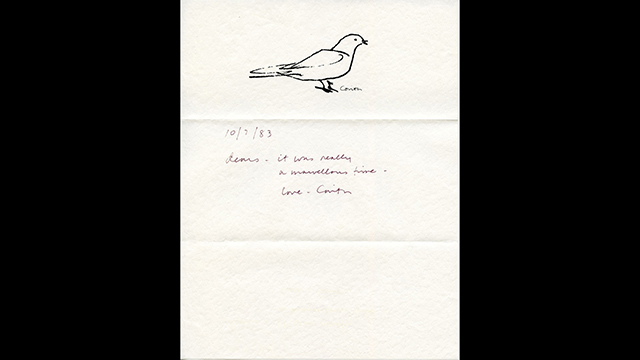 Corita
10/7/83
dears - it was really
a marvellous time -
love - Corita